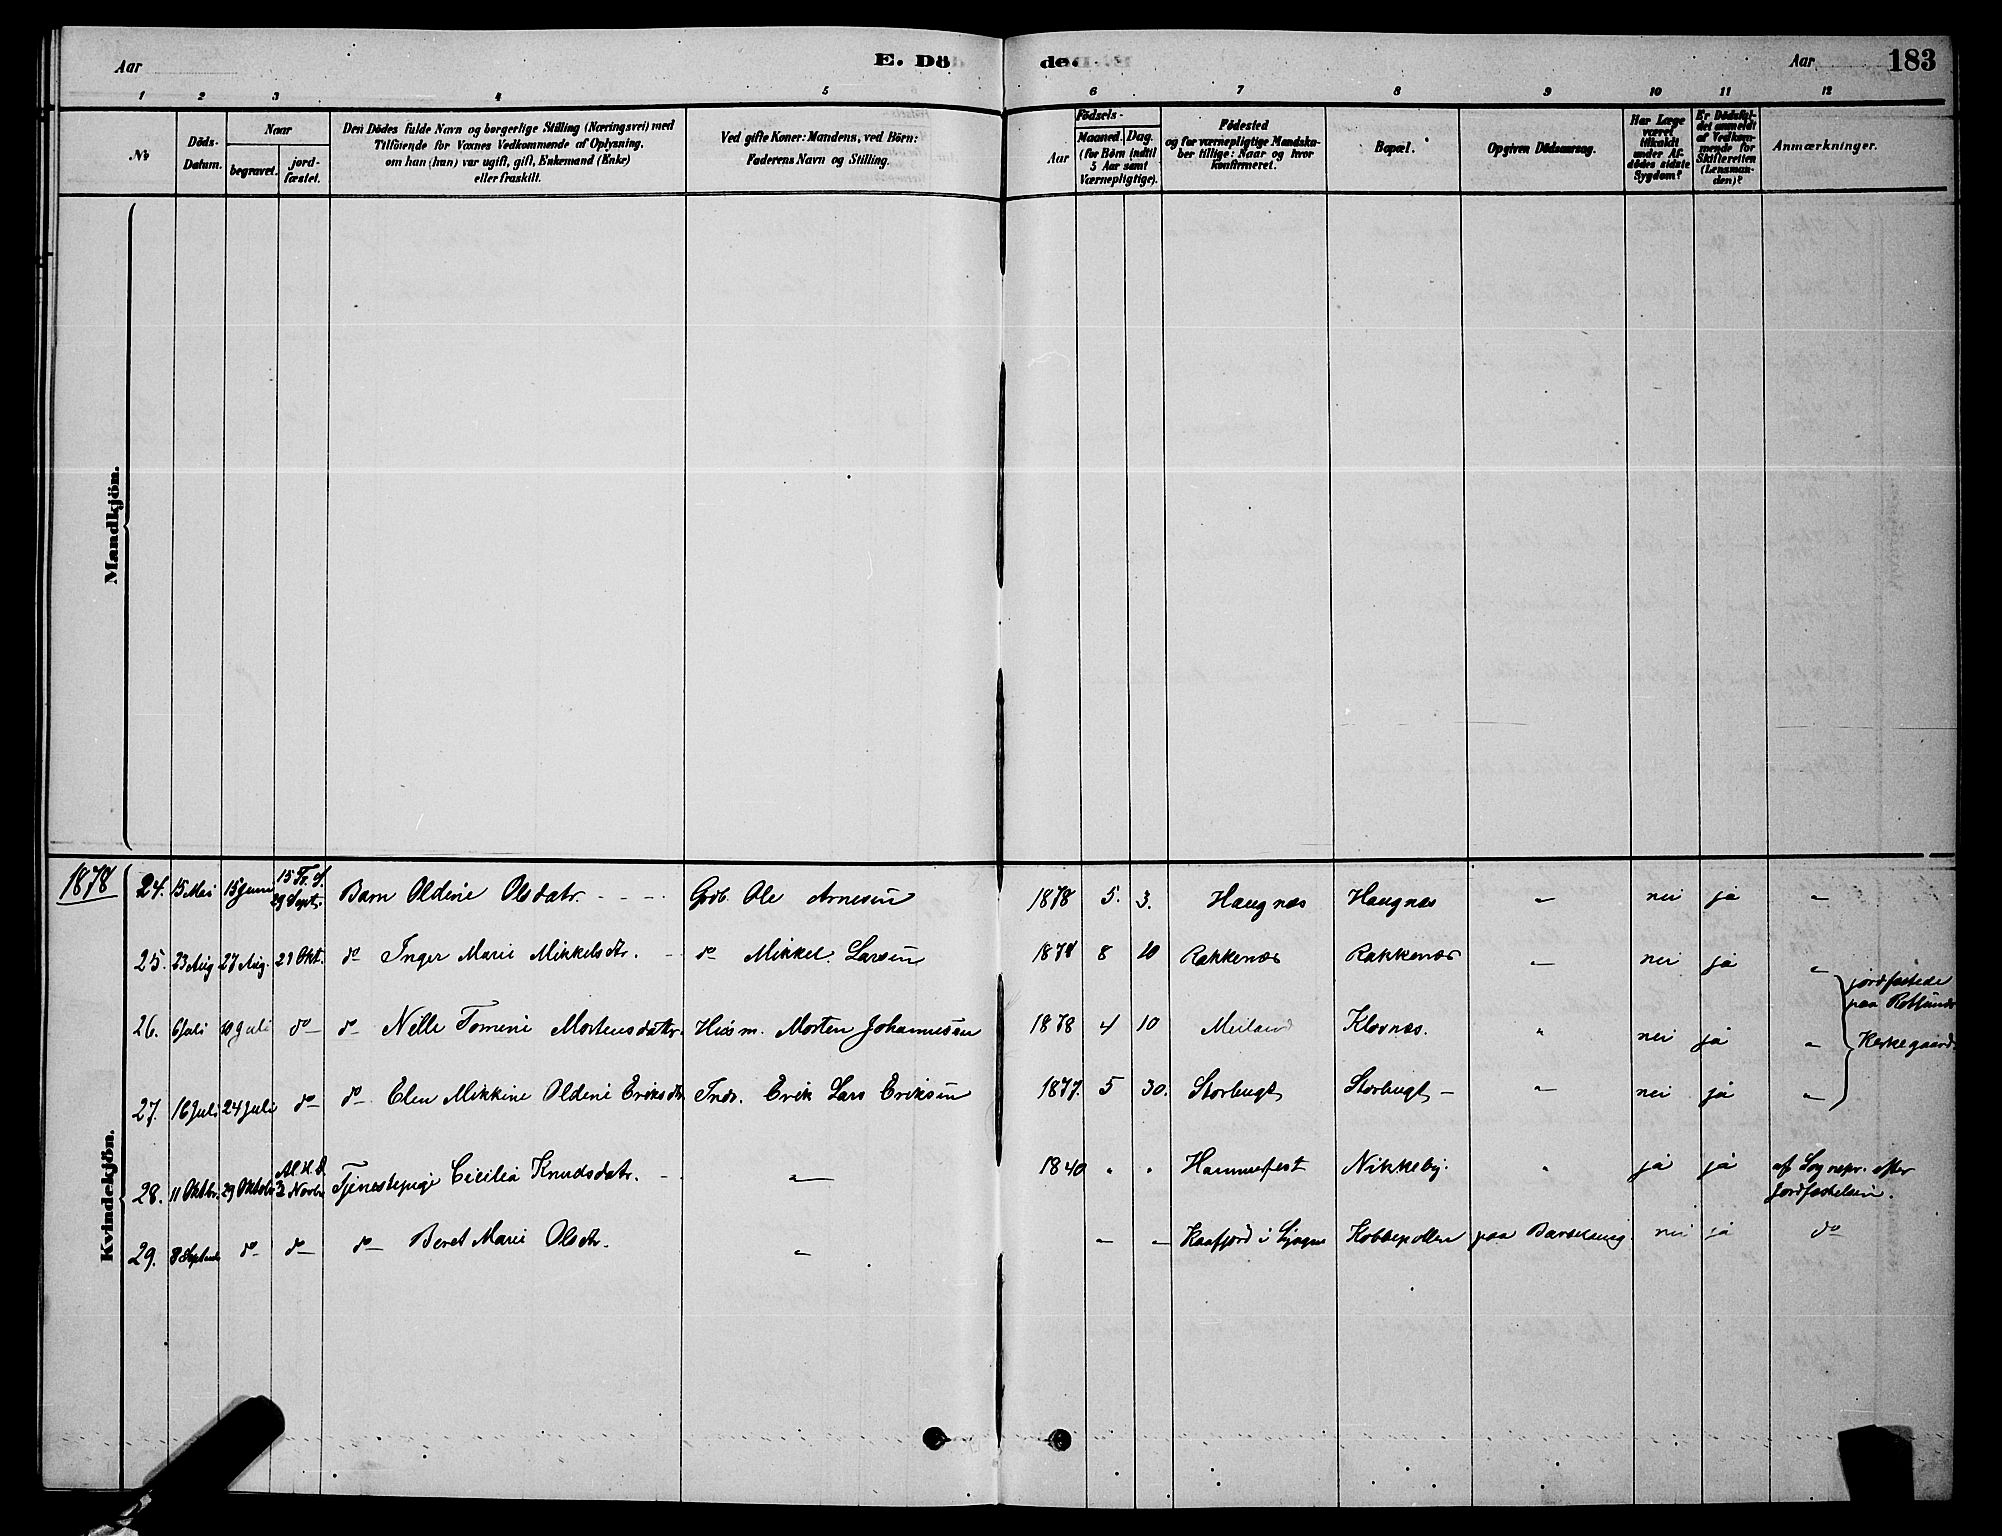 Aar
E. Dö
de.
Aar
183
1 2 3 4 5 6 7 8 9 10 11 12
No
Döds-Datum.
Naar
begravet.
jord-fæstet.
Den Dödes fulde Navn og borgerlige Stilling (Næringsvei) med
Tilföiende for Voxnes Vedkommende af Oplysning,
om han (hun) var ugift, gift, Enkemand (Enke)
eller fraskilt.
Ved gifte Koner: Mandens, ved Börn:
Faderens Navn og Stilling.
Födsels-
Aar
Maaned. Dag.
(for Börn indtil
5 Aar samt
Værnepligtige).
Födested
og for værnepligtige Mandska-
ber tillige: Naar og hvor
konfirmeret.
Bopæl.
Opgiven Dödsaarsag.
Har Læge
været
tilkaldt
under Af-
dödes sidste
Sygdom?
Er Dödsfal-
det anmeldt
af Vedkom-
mende for
Skifteretten
(Lensman-
den)?
Anmærkninger.
Mandkjön.
Kvindekjön.
1878
24. 15 Mai 15 Juni 15 Tr. S. 29 Sept. Barn Oldine Olsdatr. Grdb. Ole Arnesen 1878 5. 3. Haugnæs Haugnæs " nei ja "
25. 23 Aug 27 Aug. 21 Okt. do Inger Marie Mikkelsdtr. do Mikkel Larsen 1878 8 10 Rakkenæs Rakkenæs " nei ja "
26. 6 Juli 10 Juli do do Nelle Tomine Mortensdatr. Husm. Morten Johannessen 1878 4 10 Meiland Klovnæs. " nei ja "
27. 16 Juli 24 Juli do do Elen Mikkine Oldine Eriksdtr. Indr. Erik Lars Eriksen 1877. 5 30. Storbugt Storbugt " nei ja "
jordfæstede
paa Rotsund
Kirkegaard.
28. 11 Oktbr. 29 Oktobr. Al. H. D. 3 Novbr. Tjenestepige Cicilia Knudsdatr. " 1840 " " Hammerfest Nikkeby. " ja ja af Sognepr. efter
Jordfæstelsen.
29. 8 Septemb. do do do Beret Marie Olsdtr. " " " Kaafjord i Lyngen Kobbepollen paa Barselseng. nei ja do